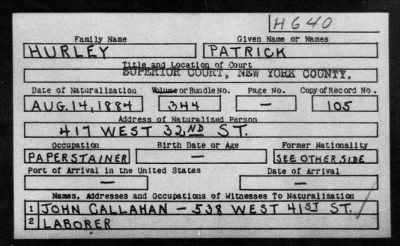 H640
Family Name Given Name or Names
HURLEY PATRICK
Title and Location of Court
SUPERIOR COURT, NEW YORK COUNTY.
Date of Naturalization Volume or Bundle No. Page No. Copy of Record No.
AUG. 14, 1884 344 — 105
Address of Naturalized Person
417 WEST 32ND ST.
Occupation Birth Date or Age Former Nationality
PAPERSTAINER — SEE OTHER SIDE
Port of Arrival in the United States Date of Arrival
— —
Names, Addresses and Occupations of Witnesses To Naturalization
1 JOHN CALLAHAN — 538 WEST 41ST ST.
2 LABORER